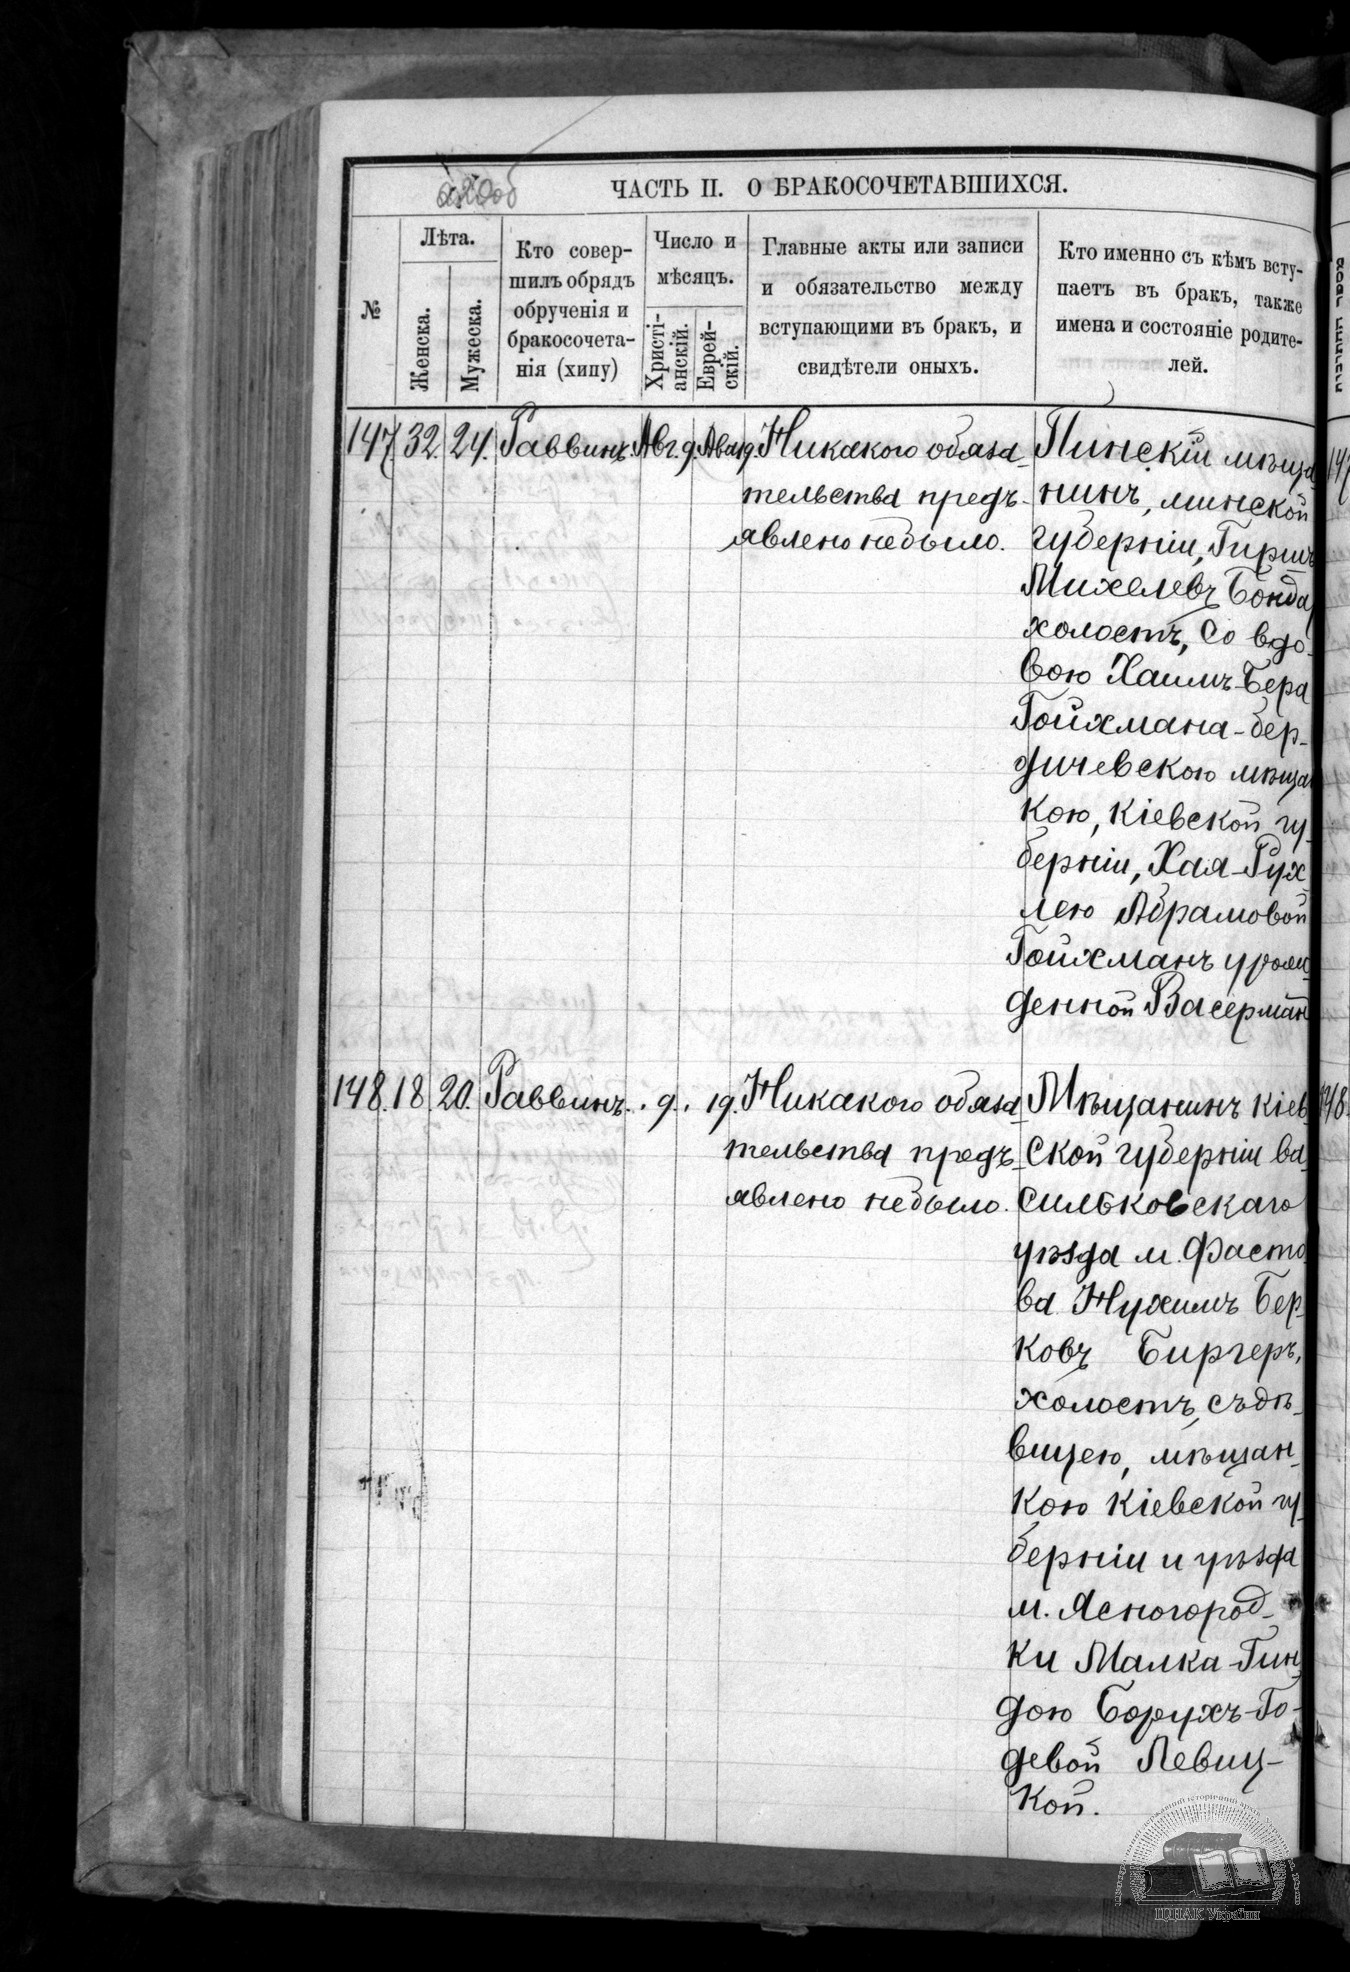 ЧАСТЬ II. О БРАКОСОЧЕТАВШИХСЯ.
№
Лѣта.
Женска.
Мужеска.
Кто совер-
шилъ обрядъ
обрученія и
бракосочета-
нія (хипу)
Число и
мѣсяцъ.
Христі-
анскій.
Еврей-
скій.
Главные акты или записи
и обязательство между
вступающими въ бракъ, и
свидѣтели оныхъ.
Кто именно съ кѣмъ всту-
паетъ въ бракъ, также
имена и состояніе родите-
лей.
147 32. 24. Раввинъ. Авг. 9. Ава 19. Никакого обяза-
тельства предъ-
явлено небыло.
Пинскій мѣща
нинъ, минской
губерніи, Гиршъ
Михелевъ Бонда
холостъ, со вдо-
вою Хаимъ-Бера
Гойхмана - бер-
дичевскою мѣща
кою, кіевской гу-
берніи, Хая-Рух
лею Абрамовой
Гойхманъ урож-
денной Васерман
148. 18. 20. Раввинъ. 9. 19. Никакого обяза-
тельства предъ-
явлено небыло.
Мѣщанинъ кіев
ской губерніи ва-
сильковскаго
уѣзда м. Фасто
ва Нухимъ Бер-
ковъ Биргеръ,
холостъ, съ дѣ-
вицею, мѣщан-
кою кіевской гу-
берніи и уѣзда
м. Ясногород-
ки Малка-Гин
дою Борухъ-Го-
девой Левиц-
кой.
147
148.
ЦДІАК України